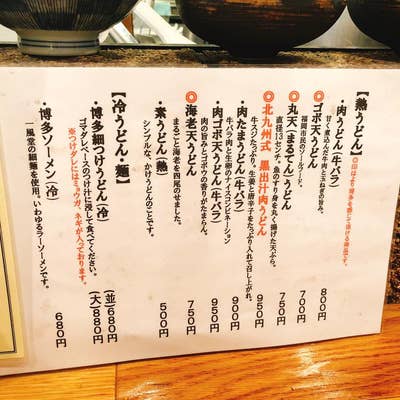 【熱うどん】◎印はより博多を感じ頂ける商品です。
・肉うどん(牛バラ) 800円
甘く煮込んだ牛肉と玉ねぎの旨み。
◎ゴボ天うどん 700円
福岡市民のソールフード。
◎丸天(まるてん)うどん 750円
直径13センチ。魚のすり身を丸く揚げた天ぷら。
◎北九州式 黒出汁肉うどん 950円
牛スジたっぷり、生姜と唐辛子をたっぷり入れて召し上がれ。
・肉たまうどん(牛バラ) 900円
牛バラ肉と生卵のナイスコンビネーション
・肉ゴボ天うどん(牛バラ) 950円
肉の旨みとゴボウの香りがたまらん。
◎海老天うどん 750円
まるごと海老を四尾のせました。
・素うどん(熱) 500円
シンプルな、かけうどんのことです。
【冷うどん・麺】
・博多細つけうどん(冷) (並)680円
(大)880円
ゴマダレベースのつけ汁に浸して食べてください。
※つけダレにはミョウガ、ネギが入っております。
・博多ソーメン(冷) 680円
一風堂の細麺を使用。いわゆるラーソーメンです。